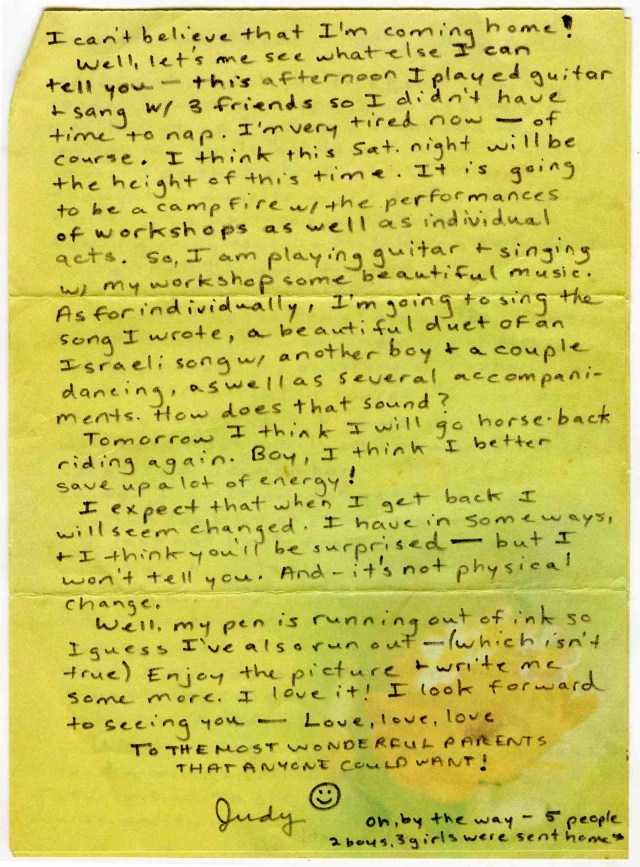 I can't believe that I'm coming home!
Well, let's me see what else I can
tell you — this afternoon I played guitar
+ sang w/ 3 friends so I didn't have
time to nap. I'm very tired now — of
course. I think this Sat. night will be
the height of this time. It is going
to be a campfire w/ the performances
of workshops as well as individual
acts. So, I am playing guitar + singing
w/ my workshop some beautiful music.
As for individually, I'm going to sing the
song I wrote, a beautiful duet of an
Israeli song w/ another boy + a couple
dancing, as well as several accompani-
ments. How does that sound?
Tomorrow I think I will go horse-back
riding again. Boy, I think I better
save up a lot of energy!
I expect that when I get back I
will seem changed. I have in some ways,
+ I think you'll be surprised — but I
won't tell you. And - it's not physical
change.
Well, my pen is running out of ink so
I guess I've also run out — (which isn't
true) Enjoy the picture + write me
some more. I love it! I look forward
to seeing you — Love, love, love
TO THE MOST WONDERFUL PARENTS
THAT ANYONE COULD WANT!
Judy
Oh, by the way - 5 people
2 boys, 3 girls were sent home